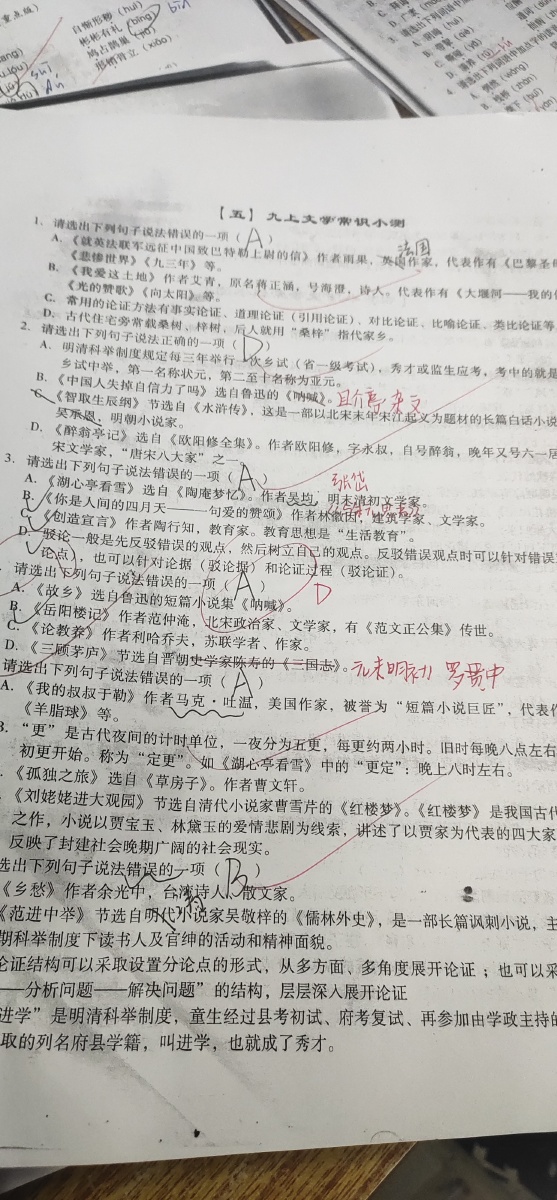 自惭形秽（huì）
彬彬有礼（bīng）
bīn
鸠占鹊巢
形销骨立（xiāo）
【五】九上文学常识小测
1. 请选出下列句子说法错误的一项（A）
A. 《就英法联军远征中国致巴特勒上尉的信》作者雨果，英国作家，代表作有《巴黎圣母
法国
《悲惨世界》《九三年》等。
B. 《我爱这土地》作者艾青，原名蒋正涵，号海澄，诗人。代表作有《大堰河——我的
《光的赞歌》《向太阳》等。
C. 常用的论证方法有事实论证、道理论证（引用论证）、对比论证、比喻论证、类比论证等
D. 古代住宅旁常栽桑树、梓树，后人就用“桑梓”指代家乡。
2. 请选出下列句子说法正确的一项（D）
A. 明清科举制度规定每三年举行一次乡试（省一级考试），秀才或监生应考，考中的就是
乡试中举，第一名称状元，第二至十名称为亚元。
B. 《中国人失掉自信力了吗》选自鲁迅的《呐喊》。且介亭杂文
C. 《智取生辰纲》节选自《水浒传》，这是一部以北宋末年宋江起义为题材的长篇白话小说
吴承恩，明朝小说家。
D. 《醉翁亭记》选自《欧阳修全集》。作者欧阳修，字永叔，自号醉翁，晚年又号六一居
宋文学家，“唐宋八大家”之一。
3. 请选出下列句子说法错误的一项（A）
张岱
A. 《湖心亭看雪》选自《陶庵梦忆》。作者吴均，明末清初文学家。
B. 《你是人间的四月天——一句爱的赞颂》作者林徽因，建筑学家、文学家。
C. 《创造宣言》作者陶行知，教育家。教育思想是“生活教育”。
D. 驳论一般是先反驳错误的观点，然后树立自己的观点。反驳错误观点时可以针对错误
论点），也可以针对论据（驳论据）和论证过程（驳论证）。
请选出下列句子说法错误的一项（A）
D
A. 《故乡》选自鲁迅的短篇小说集《呐喊》。
B. 《岳阳楼记》作者范仲淹，北宋政治家、文学家，有《范文正公集》传世。
C. 《论教养》作者利哈乔夫，苏联学者、作家。
D. 《三顾茅庐》节选自晋朝史学家陈寿的《三国志》。元末明初 罗贯中
请选出下列句子说法错误的一项（A）
A. 《我的叔叔于勒》作者马克·吐温，美国作家，被誉为“短篇小说巨匠”，代表作
《羊脂球》等。
“更”是古代夜间的计时单位，一夜分为五更，每更约两小时。旧时每晚八点左右
初更开始。称为“定更”。如《湖心亭看雪》中的“更定”：晚上八时左右。
《孤独之旅》选自《草房子》。作者曹文轩。
《刘姥姥进大观园》节选自清代小说家曹雪芹的《红楼梦》。《红楼梦》是我国古代
之作，小说以贾宝玉、林黛玉的爱情悲剧为线索，讲述了以贾家为代表的四大家
反映了封建社会晚期广阔的社会现实。
选出下列句子说法错误的一项（B）
《乡愁》作者余光中，台湾诗人、散文家。
清
《范进中举》节选自明代小说家吴敬梓的《儒林外史》，是一部长篇讽刺小说，主
期科举制度下读书人及官绅的活动和精神面貌。
论证结构可以采取设置分论点的形式，从多方面、多角度展开论证；也可以采
——分析问题——解决问题”的结构，层层深入展开论证
进学”是明清科举制度，童生经过县考初试、府考复试、再参加由学政主持的
取的列名府县学籍，叫进学，也就成了秀才。